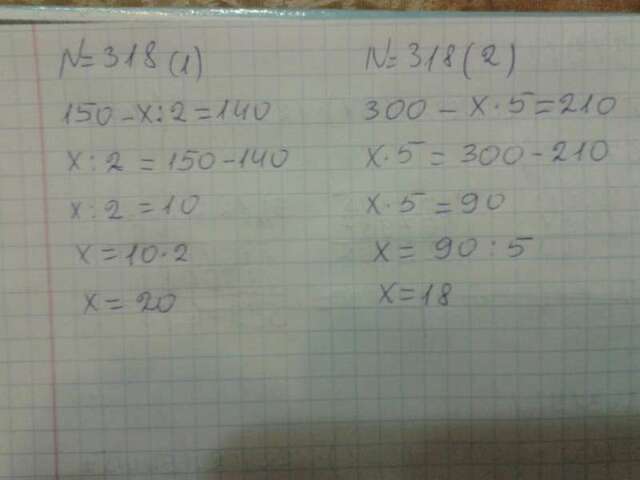 N=318 (1)
150-x:2=140
x:2=150-140
x:2=10
x=10·2
x=20
N=318(2)
300-x·5=210
x·5=300-210
x·5=90
x=90:5
x=18